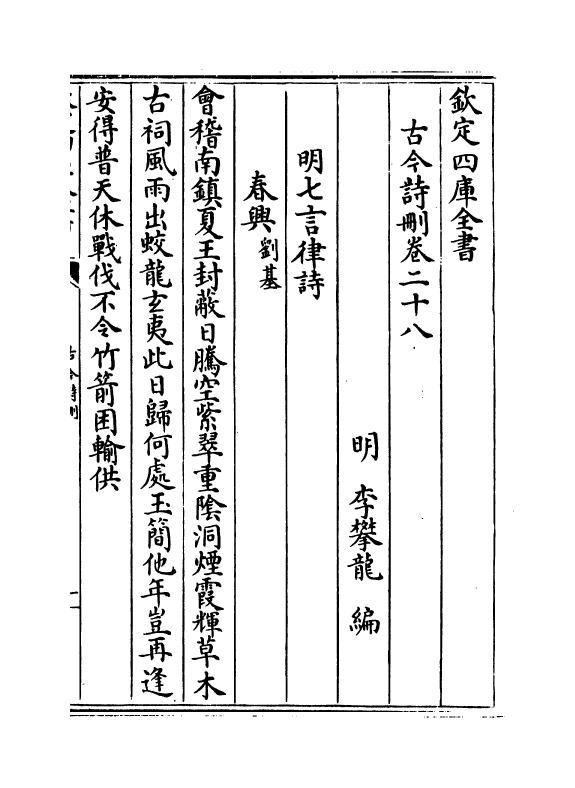 欽定四庫全書
古今詩刪卷二十八
明 李攀龍 編
明七言律詩
春興劉基
會稽南鎮夏王封蔽日騰空紫翠重陰洞煙霞輝草木
古祠風雨出蛟龍玄夷此日歸何處玉簡他年豈再逢
安得普天休戰伐不令竹箭困輸供
古今詩刪